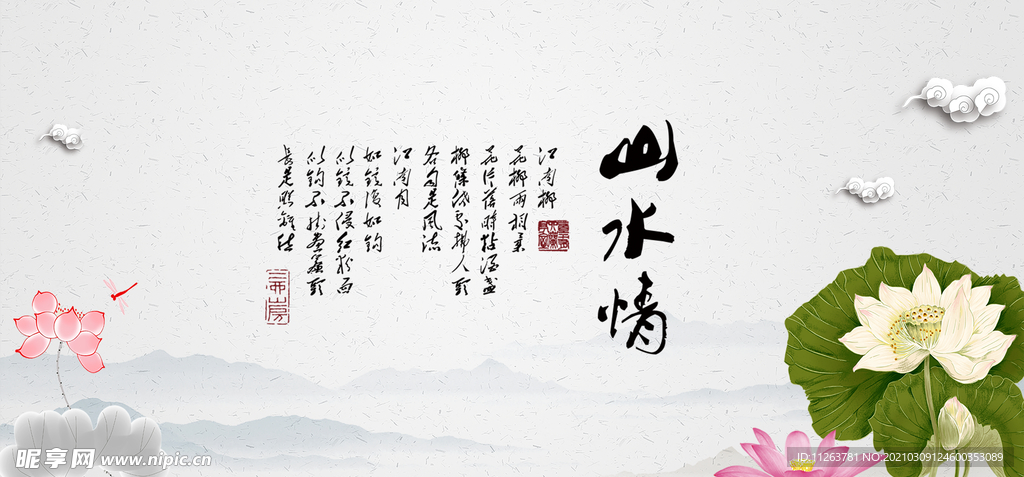 山水情
江南柳
花柳两相柔
花片落時黏酒盞
柳條低處拂人頭
各自是風流
江南月
如鏡復如鉤
似鏡不侵紅粉面
似鉤不挂畫簾頭
長是照離愁
昵享网 www.nipic.cn
ID:11263781 NO:20210309124600353089